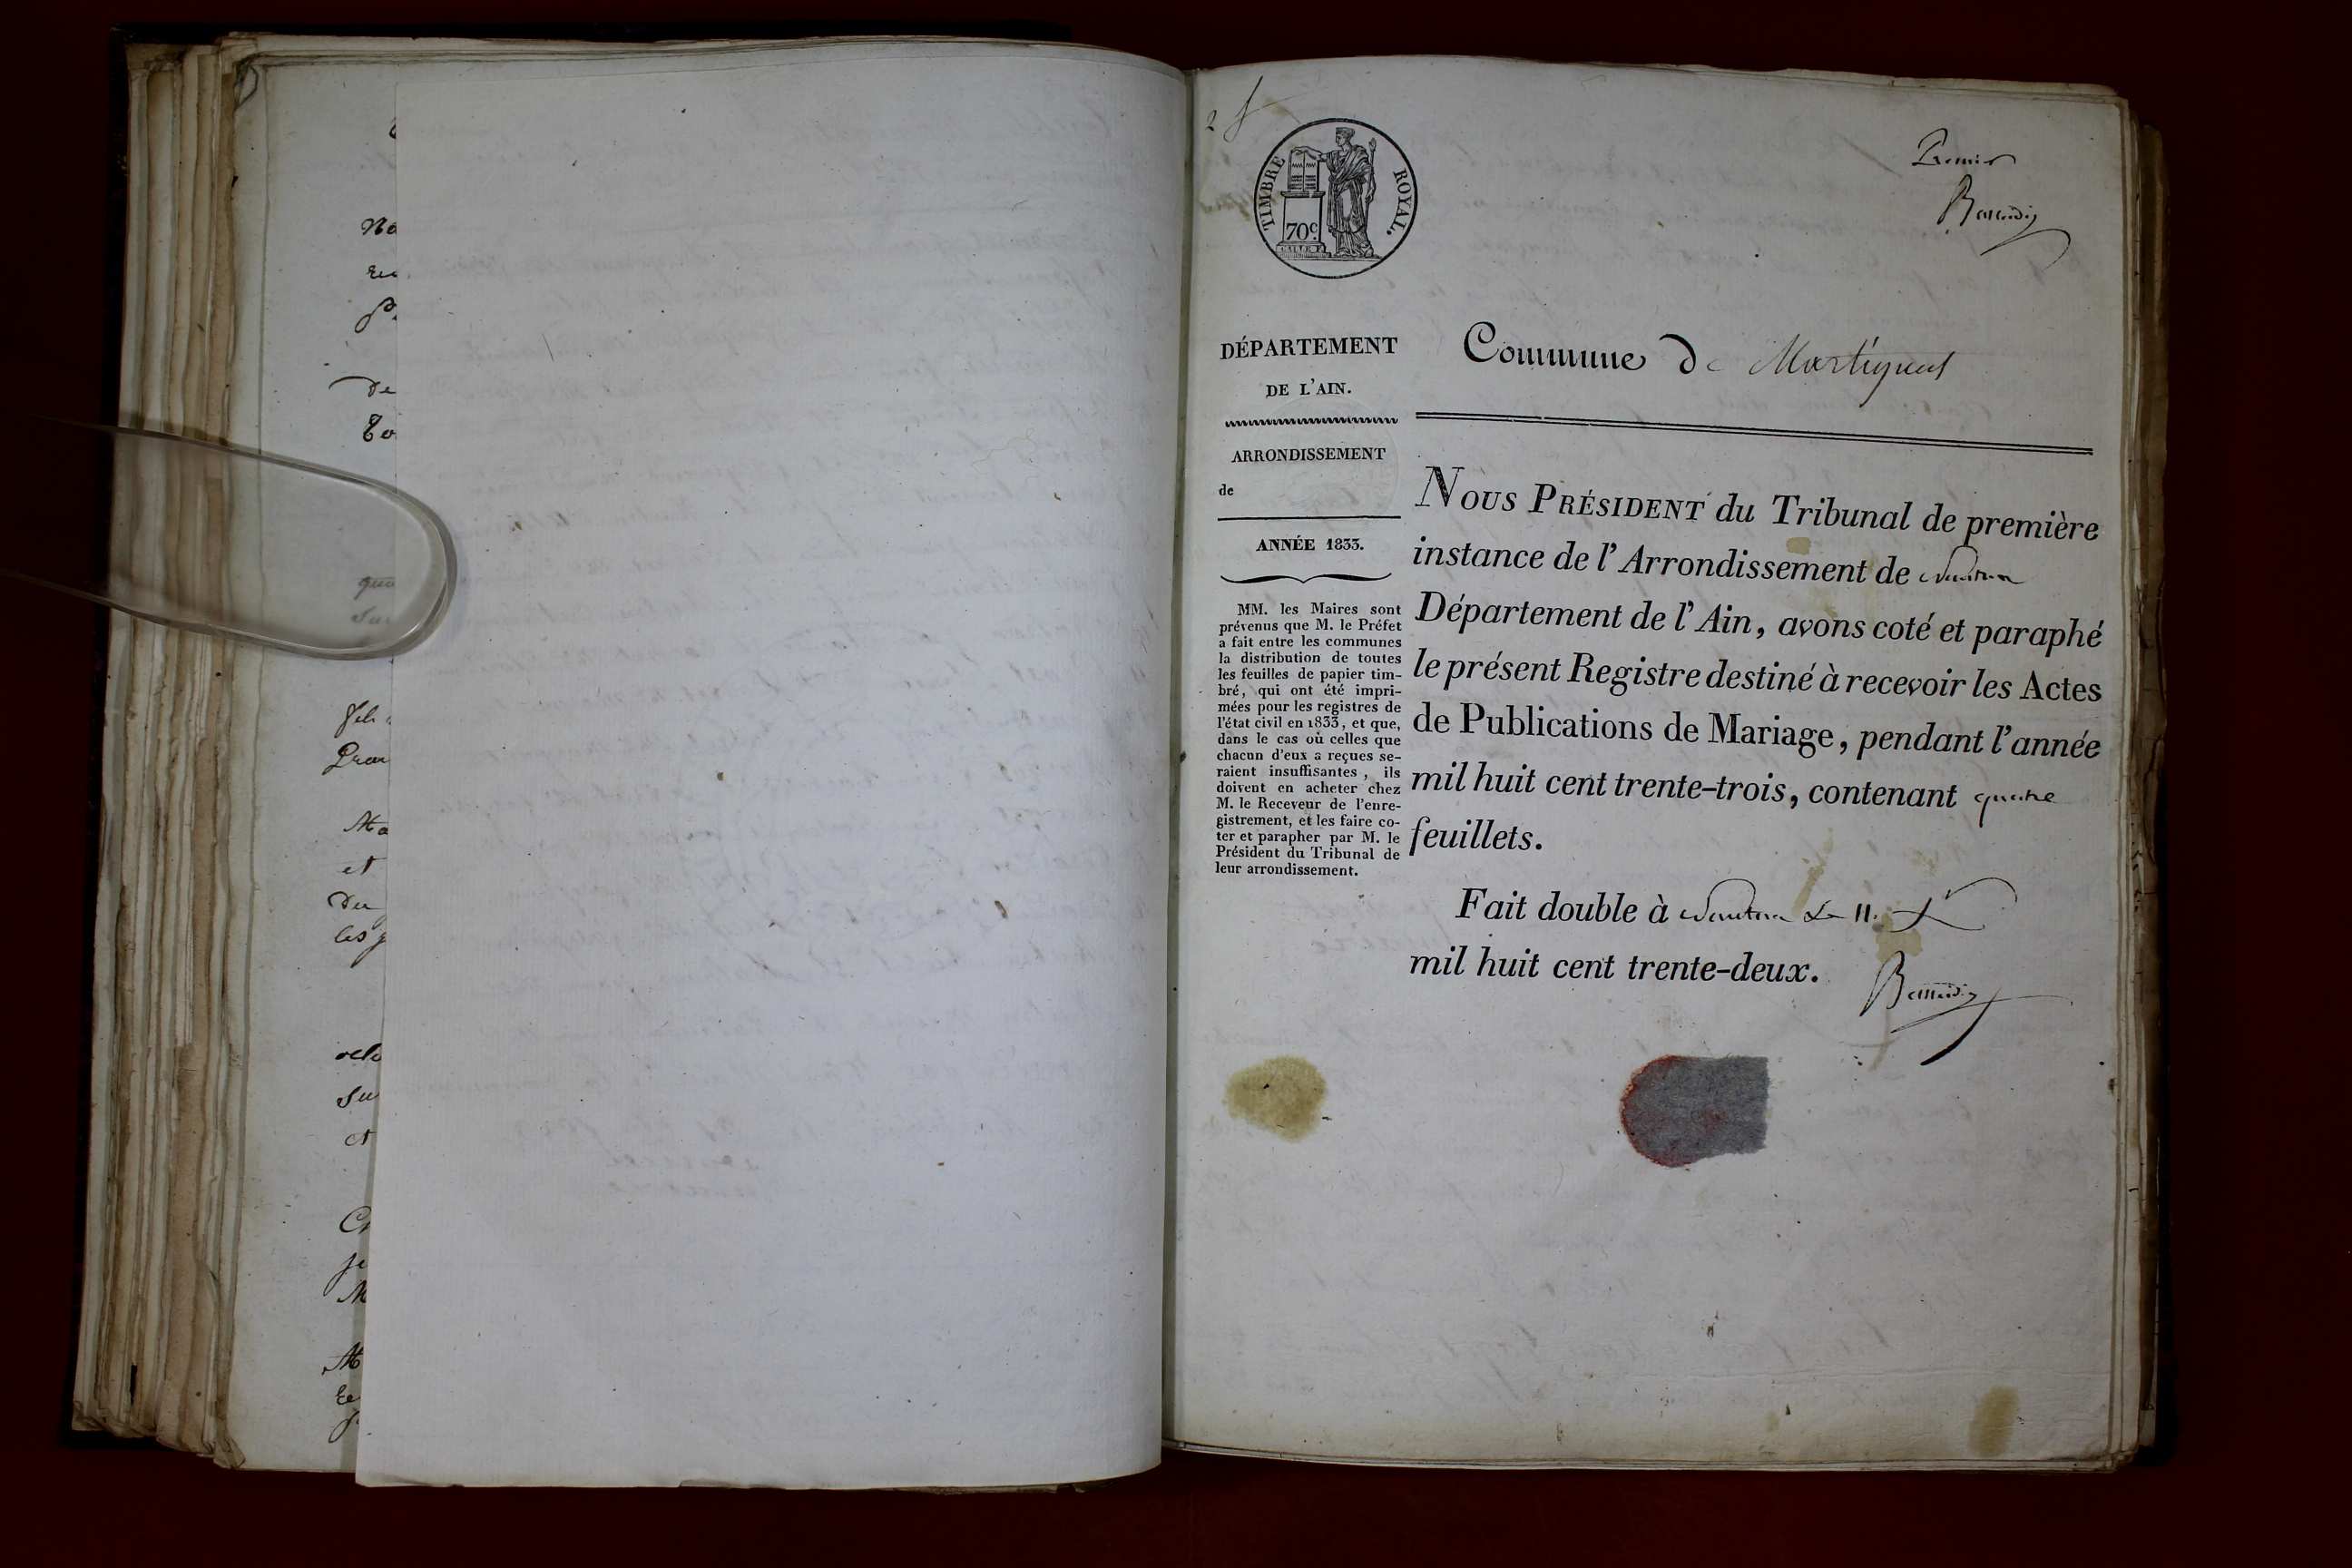 No
de
et
Du
les
Su
et
2
TIMBRE ROYAL.
70c
Premier
DÉPARTEMENT
DE L'AIN.
ARRONDISSEMENT
de
ANNÉE 1833.
MM. les Maires sont
prévenus que M. le Préfet
a fait entre les communes
la distribution de toutes
les feuilles de papier tim-
bré, qui ont été impri-
mées pour les registres de
l'état civil en 1833, et que,
dans le cas où celles que
chacun d'eux a reçues se-
raient insuffisantes, ils
doivent en acheter chez
M. le Receveur de l'enre-
gistrement, et les faire co-
ter et parapher par M. le
Président du Tribunal de
leur arrondissement.
Commune de Martignat
NOUS PRÉSIDENT du Tribunal de première
instance de l'Arrondissement de Nantua
Département de l'Ain, avons coté et paraphé
le présent Registre destiné à recevoir les Actes
de Publications de Mariage, pendant l'année
mil huit cent trente-trois, contenant quatre
feuillets.
Fait double à Nantua Le 11.
mil huit cent trente-deux.